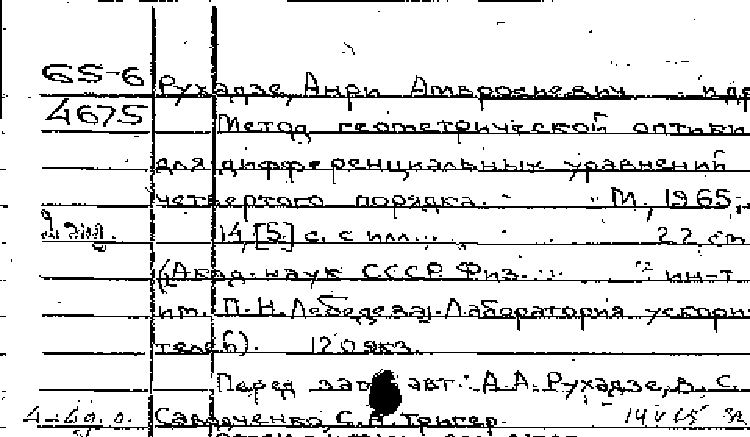 65-6 Рухадзе, Анри Амвросиевич и др
4675 Метод геометрической оптики
для дифференциальных уравнений
четвертого порядка. М., 1965,
2 экз. 14, [5] с. с илл. 22 см
(Акад. наук СССР. Физ. ин-т
им. П. Н. Лебедева. Лаборатория ускори
телей). 120 экз.
Перед загл. авт.: А.А. Рухадзе, В. С.
Савадченко, С.А. Тригер.